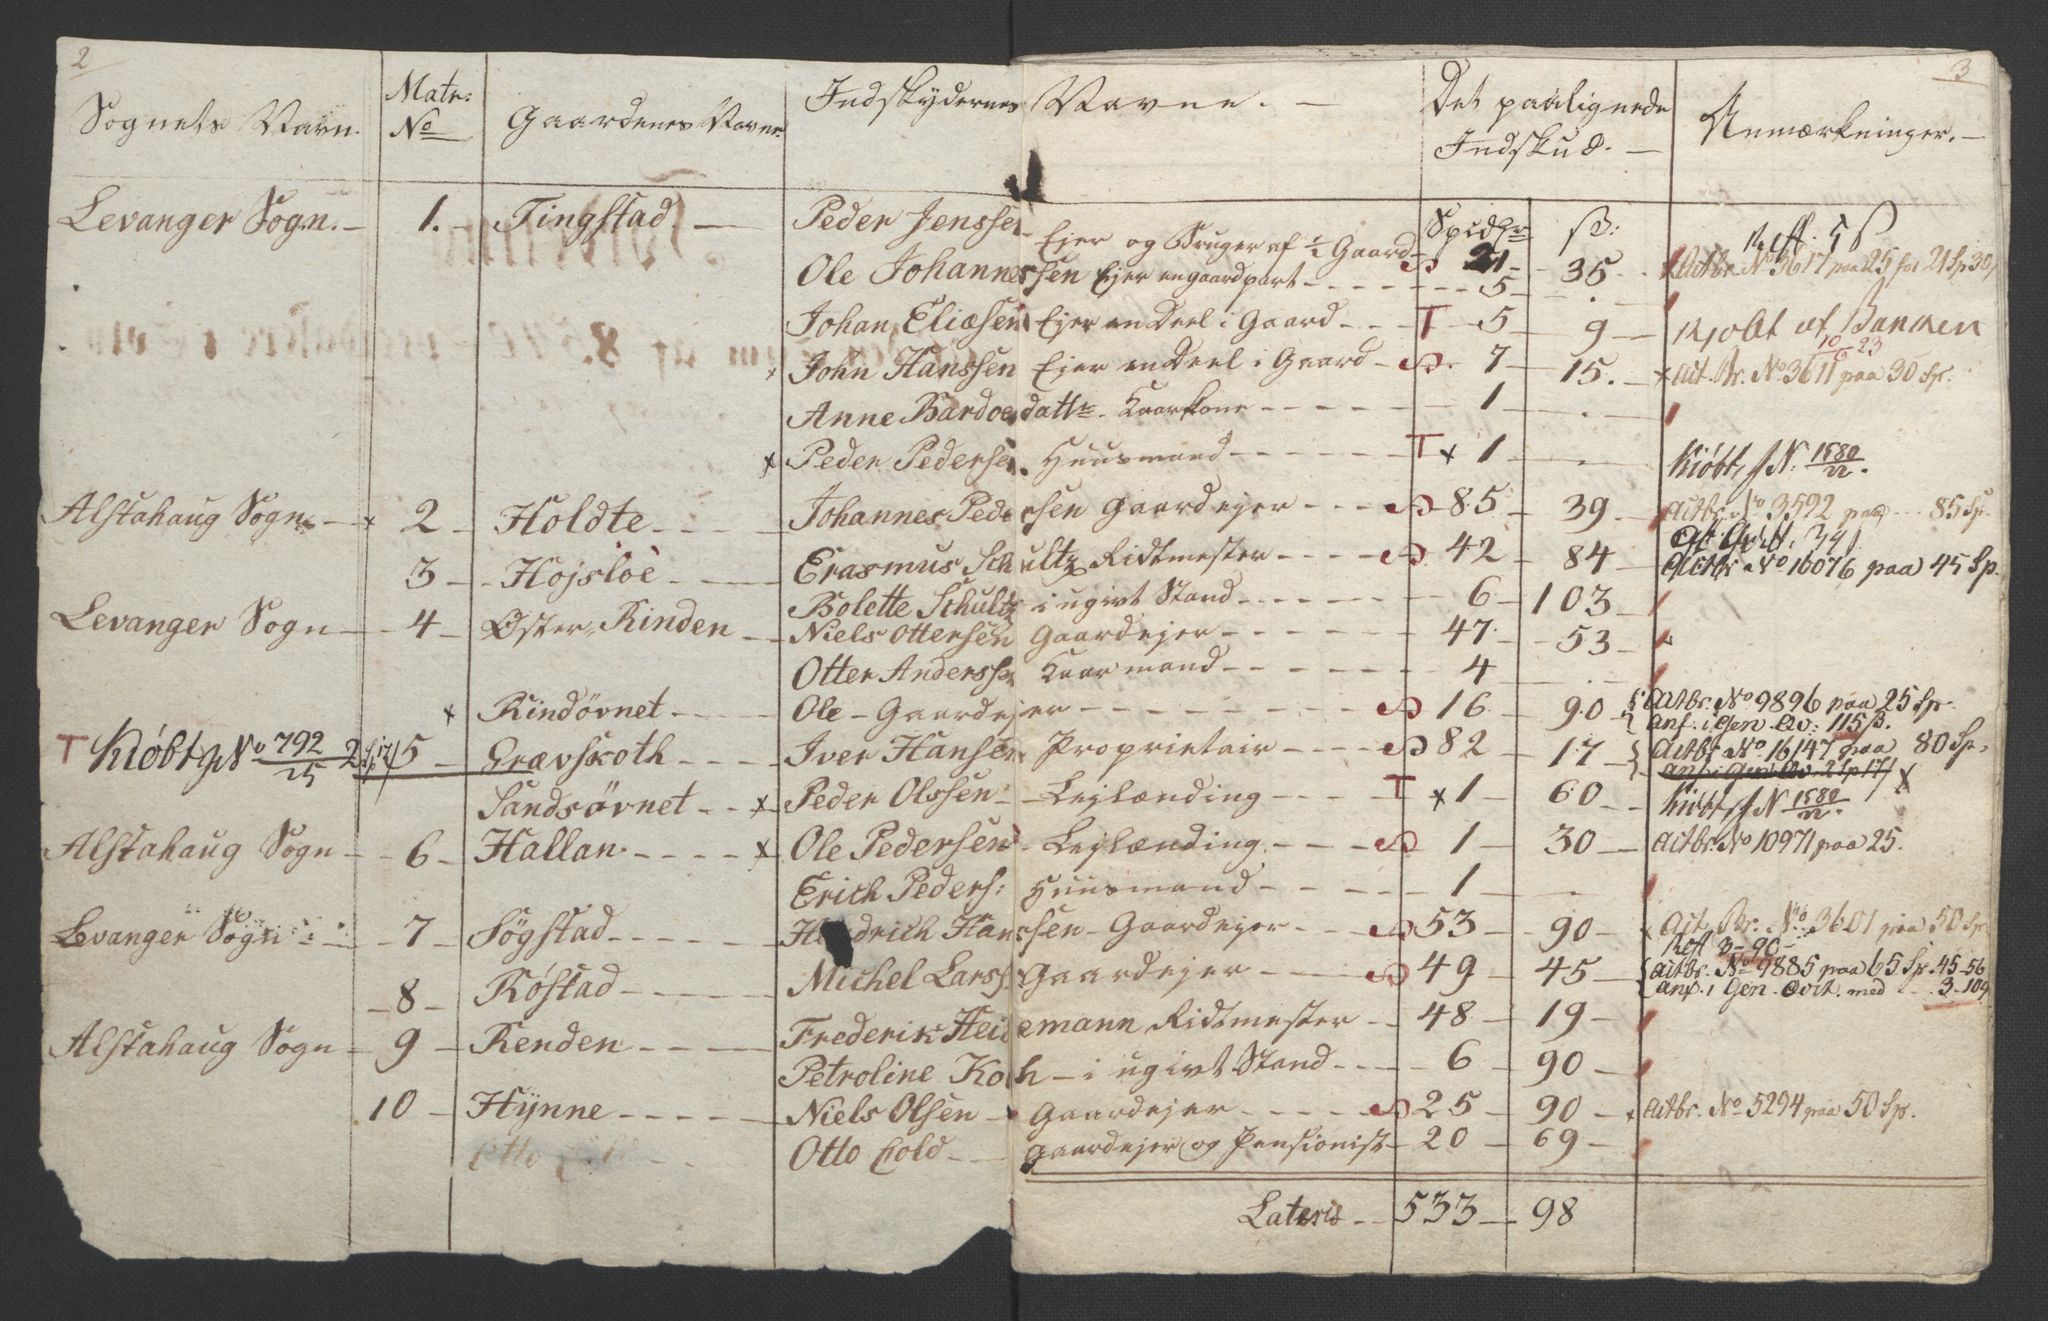 2
3
Sognets Navn. Matr: No Gaardenes Navne Indskydernes Navne. Det paalignede Indskud. Anmærkninger.
Spidlr ß:
Levanger Sogn. 1. Tingstad Peder Jenssen Ejer og Bruger af 1/2 Gaard S 21 35 Actbr. No 3617 paa 25 Sp 21 Sp 30
Ole Johannessen Ejer en gaardpart 5 .
Johan Eliæsen Ejer en Deel i Gaard T 5 9 Kjobt af Banken
x John Hanssen Ejer en Deel i Gaard S 7 15. x Act. Br. No 3611 paa 30 Sp.
Anne Bardoesdattr. Kaarkone 1 .
x Peder Pedersen. Huusmand T x 1 Kiøbt, J N. 1580/22.
Alstahaug Sogn x 2 Holdte Johannes Pedersen Gaardejer S 85 39 Actbr. No 3592 paa 85 Sp.
3 Hojsloe Erasmus Schultz Ridtmester S 42 84 Actbr No 16076 paa 45 Sp.
Bolette Schultz i ugivt Stand 6 103
Levanger Sogn 4 Øster Rinden Niels Ottersen Gaardejer 47 53
Otter Anderssen Kaarmand 4 .
x Rindövnet Ole Gaardejer S 16 90 Actbr. No 9896 paa 25 Sp.
anf: i Gen. Qv: 115 ß.
T Kiøbt J No 792/25 2 Sp 17 ß 5 Grævskoth Iver Hansen Proprietair S 82 17 Actbr No 16147 paa 80 Sp.
anf. i Gen: Qv. 2 Sp 17 ß x
Sandsövnet x Peder Olssen Lejlænding T x 1 60 Kiøbt, J N 1580/22.
Alstahaug Sogn 6 Hallan x Ole Pedersen Lejlænding S 1 30 Actbr. No 10971 paa 25.
Erich Peders: Huusmand 1 .
Levanger Sogn 7 Sögstad Hendrich Hanssen Gaardejer S 53 90 x Act. Br. No 3601 paa 50 Sp
Rest 3-90
8 Röstad Michel Larss. Gaardejer S 49 45 Actbr. No 9885 paa 65 Sp. 45-56
anf. i Gen. Qvit. med 3-109
Alstahaug Sogn 9 Renden Frederik Heidemann Ridtmester 48 19
Petroline Koch i ugivt Stand 6 90
10 Hynne Niels Olsen Gaardejer S 25 90 x Actbr. No 5294 paa 50 Sp.
Otto Cold Gaardejer og Pensionist 20 69
Lateris 533 98